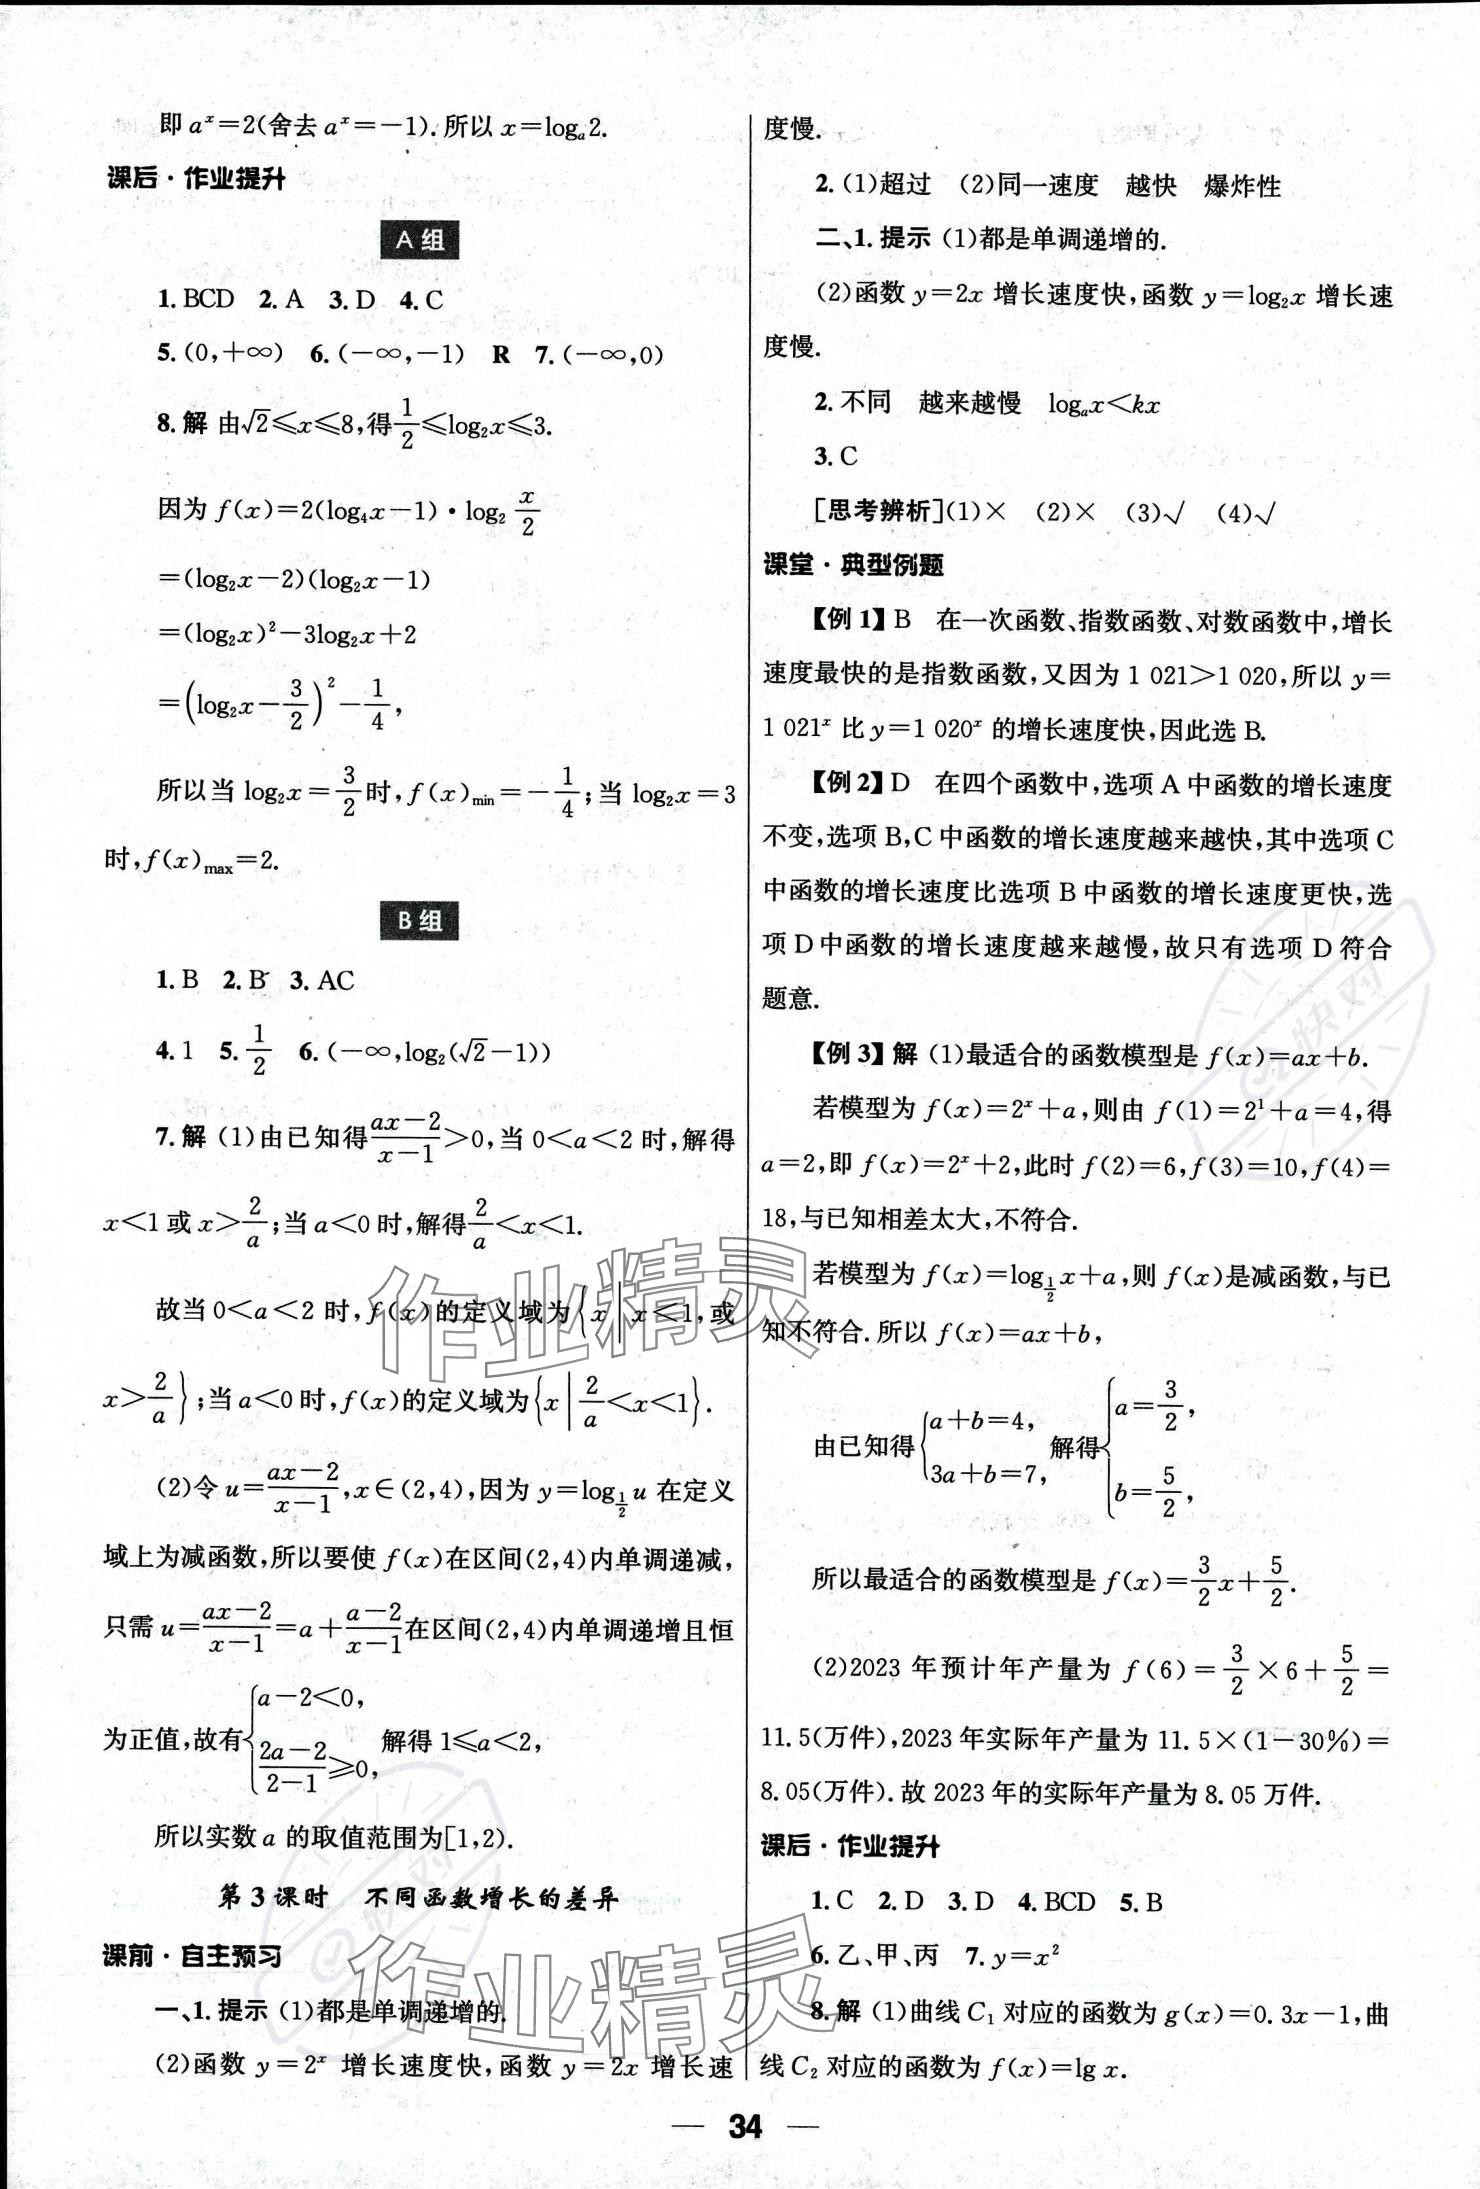 即 aˣ=2(舍去 aˣ=-1).所以 x=logₐ2.
课后·作业提升
A 组
1.BCD 2.A 3.D 4.C
5.(0,+∞) 6.(-∞,-1) R 7.(-∞,0)
8.解 由√2≤x≤8,得1/2≤log₂x≤3.
因为 f(x)=2(log₄x-1)·log₂ x/2
=(log₂x-2)(log₂x-1)
=(log₂x)²-3log₂x+2
=(log₂x-3/2)²-1/4,
所以当 log₂x=3/2时,f(x)min=-1/4;当 log₂x=3
时,f(x)max=2.
B 组
1.B 2.B 3.AC
4.1 5.1/2 6.(-∞,log₂(√2-1))
7.解 (1)由已知得(ax-2)/(x-1)>0,当 0<a<2 时,解得
x<1 或 x>2/a;当 a<0 时,解得2/a<x<1.
故当 0<a<2 时,f(x)的定义域为{x|x<1,或
x>2/a};当 a<0 时,f(x)的定义域为{x|2/a<x<1}.
(2)令 u=(ax-2)/(x-1),x∈(2,4),因为 y=log_{1/2} u 在定义
域上为减函数,所以要使 f(x)在区间(2,4)内单调递减,
只需 u=(ax-2)/(x-1)=a+(a-2)/(x-1)在区间(2,4)内单调递增且恒
为正值,故有{a-2<0, (2a-2)/(2-1)≥0, 解得 1≤a<2,
所以实数 a 的取值范围为[1,2).
第 3 课时 不同函数增长的差异
课前·自主预习
一、1.提示 (1)都是单调递增的.
(2)函数 y=2ˣ 增长速度快,函数 y=2x 增长速
度慢.
2.(1)超过 (2)同一速度 越快 爆炸性
二、1.提示 (1)都是单调递增的.
(2)函数 y=2x 增长速度快,函数 y=log₂x 增长速
度慢.
2.不同 越来越慢 logₐx<kx
3.C
[思考辨析](1)× (2)× (3)√ (4)√
课堂·典型例题
【例 1】B 在一次函数、指数函数、对数函数中,增长
速度最快的是指数函数,又因为 1 021>1 020,所以 y=
1 021ˣ 比 y=1 020ˣ 的增长速度快,因此选 B.
【例 2】D 在四个函数中,选项 A 中函数的增长速度
不变,选项 B,C 中函数的增长速度越来越快,其中选项 C
中函数的增长速度比选项 B 中函数的增长速度更快,选
项 D 中函数的增长速度越来越慢,故只有选项 D 符合
题意.
【例 3】解 (1)最适合的函数模型是 f(x)=ax+b.
若模型为 f(x)=2ˣ+a,则由 f(1)=2¹+a=4,得
a=2,即 f(x)=2ˣ+2,此时 f(2)=6,f(3)=10,f(4)=
18,与已知相差太大,不符合.
若模型为 f(x)=log_{1/2} x+a,则 f(x)是减函数,与已
知不符合.所以 f(x)=ax+b,
由已知得{a+b=4, 3a+b=7, 解得{a=3/2, b=5/2,
所以最适合的函数模型是 f(x)=3/2x+5/2.
(2)2023 年预计年产量为 f(6)=3/2×6+5/2=
11.5(万件),2023 年实际年产量为 11.5×(1-30%)=
8.05(万件).故 2023 年的实际年产量为 8.05 万件.
课后·作业提升
1.C 2.D 3.D 4.BCD 5.B
6.乙、甲、丙 7.y=x²
8.解 (1)曲线 C₁ 对应的函数为 g(x)=0.3x-1,曲
线 C₂ 对应的函数为 f(x)=lg x.
— 34 —
作业精灵
作业精灵
快对
快对